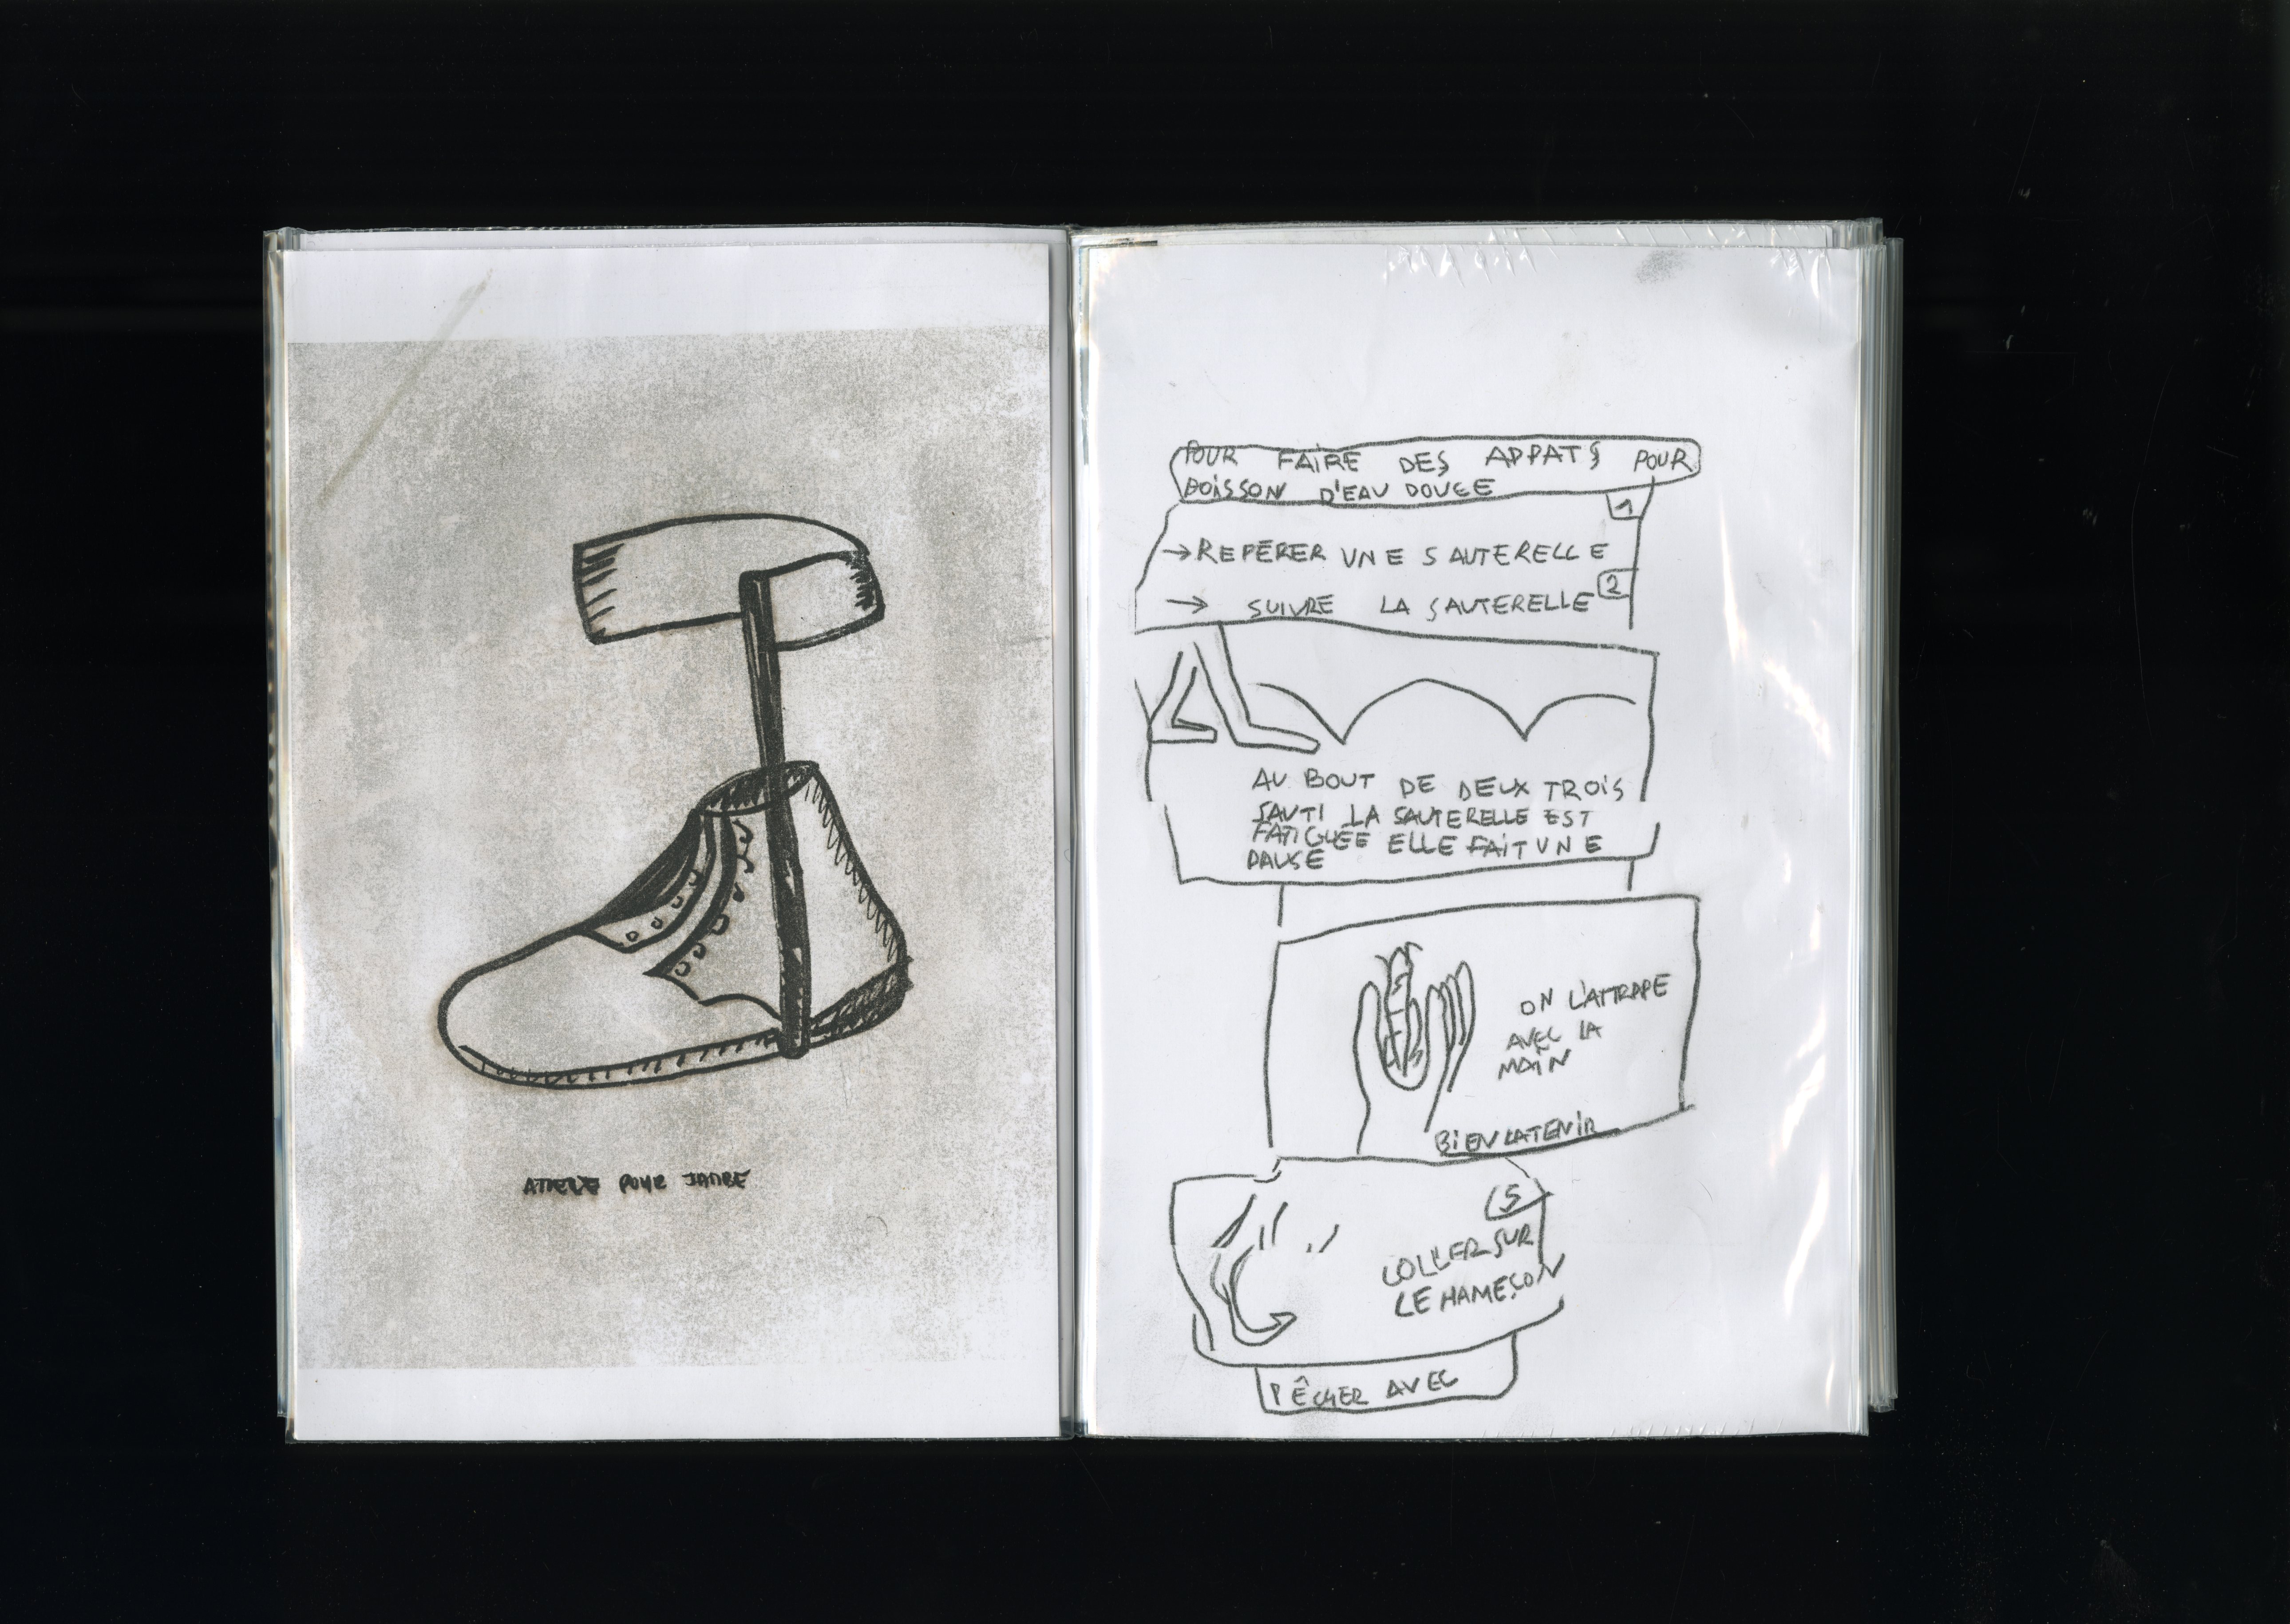 ATTELE POUR JAMBE
POUR FAIRE DES APPATS POUR
POISSON D'EAU DOUCE
1
→ REPÉRER UNE SAUTERELLE
2
→ SUIVRE LA SAUTERELLE
AU BOUT DE DEUX TROIS
SAUTS LA SAUTERELLE EST
FATIGUÉE ELLE FAIT UNE
PAUSE
ON L'ATTRAPE
AVEC LA
MAIN
BIEN LA TENIR
5
COLLER SUR
LE HAMEÇON
PÊCHER AVEC